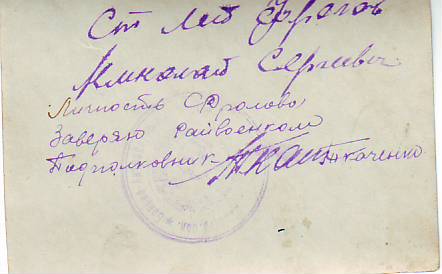 Ст Лей Фролов
Николай Сергеевич
Личность Фролова
Заверяю Райвоенком
Подполковник Ткаченко